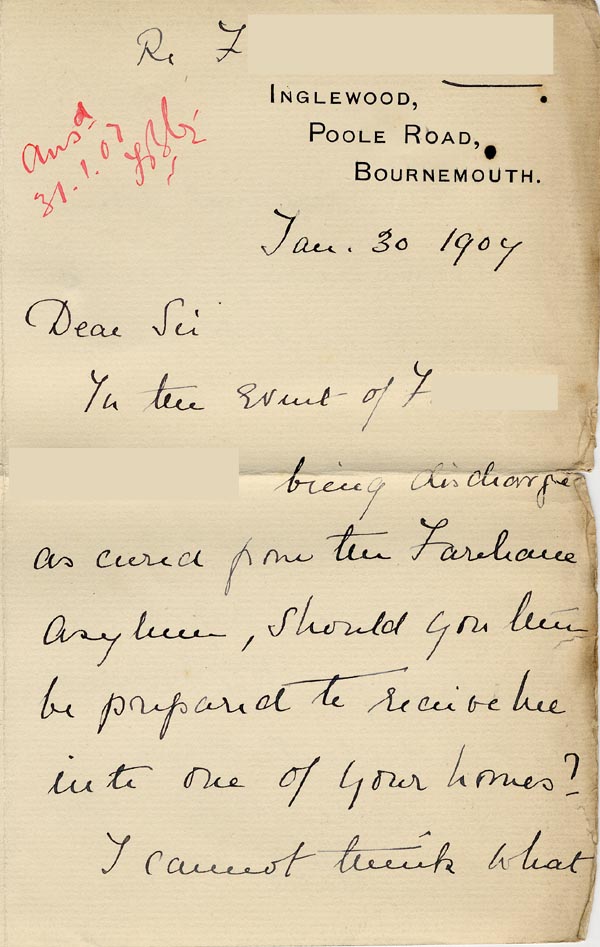 Re F
INGLEWOOD,
POOLE ROAD,
BOURNEMOUTH.
ansd
31.1.07
Jan. 30 1907
Dear Sir
In the event of F.
being discharge
as cured from the Fareham
Asylum, should you then
be prepared to receive her
into one of your homes?
I cannot think what